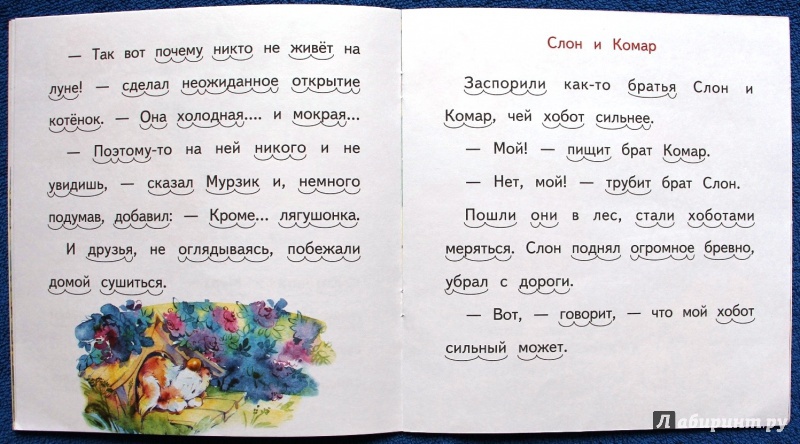 — Так вот почему никто не живёт на
луне! — сделал неожиданное открытие
котёнок. — Она холодная.... и мокрая...
— Поэтому-то на ней никого и не
увидишь, — сказал Мурзик и, немного
подумав, добавил: — Кроме... лягушонка.
И друзья, не оглядываясь, побежали
домой сушиться.
Слон и Комар
Заспорили как-то братья Слон и
Комар, чей хобот сильнее.
— Мой! — пищит брат Комар.
— Нет, мой! — трубит брат Слон.
Пошли они в лес, стали хоботами
меряться. Слон поднял огромное бревно,
убрал с дороги.
— Вот, — говорит, — что мой хобот
сильный может.
Лабиринт.ру